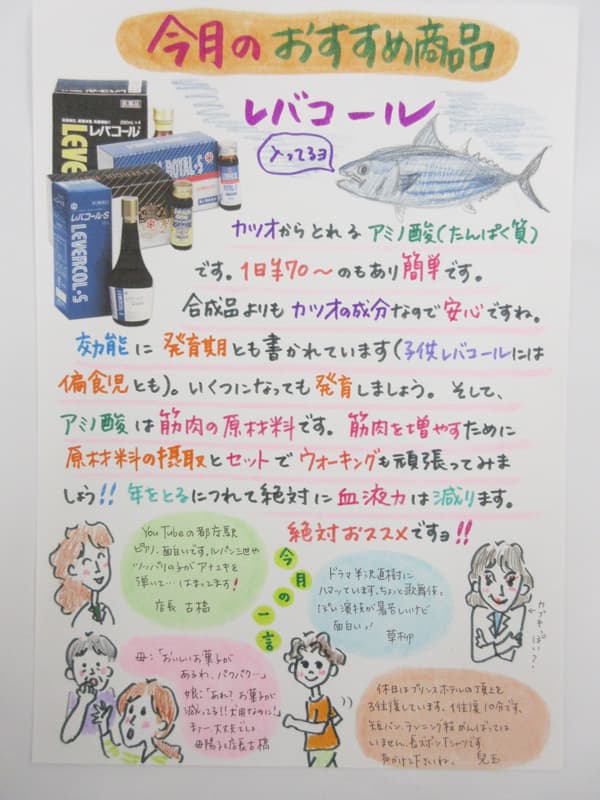 今月のおすすめ商品
レバコール
入ってるヨ
医薬品
レバコール
LEVER
ROYAL・S
レバコール・S
LEVERCOL・S
カツオからとれるアミノ酸(たんぱく質)
です。1日¥70〜のもあり簡単です。
合成品よりもカツオの成分なので安心ですね。
効能に発育期とも書かれています(子供レバコールには
偏食児とも)。いくつになっても発育しましょう。そして、
アミノ酸は筋肉の原材料です。筋肉を増やすために
原材料の摂取とセットでウォーキングも頑張ってみま
しょう!!年をとるにつれて絶対に血液力は減ります。
絶対おススメですョ!!
今月の一言
YouTubeの都庁駅
ピアノ、面白いです。ルパン三世や
ツッパリの子がアナユキを
弾いて…はまってます!
店長 古橋
ドラマ半沢直樹に
ハマッています。ちょっと歌舞伎っ
ぽい演技が暑苦しいけど
面白いっ!
草柳
カブキっぽい?
母:「おいしいお菓子が
あるわ、パクパクー」
娘:「あれ?お菓子が
減ってる!!犬用なのに!」
きゃー大丈夫?
店長古橋
休日はプリンスホテルの頂上を
3往復しています。1往復10分です。
短パン、ランニング程がんばっては
いません、長ズボンTシャツです。
児玉